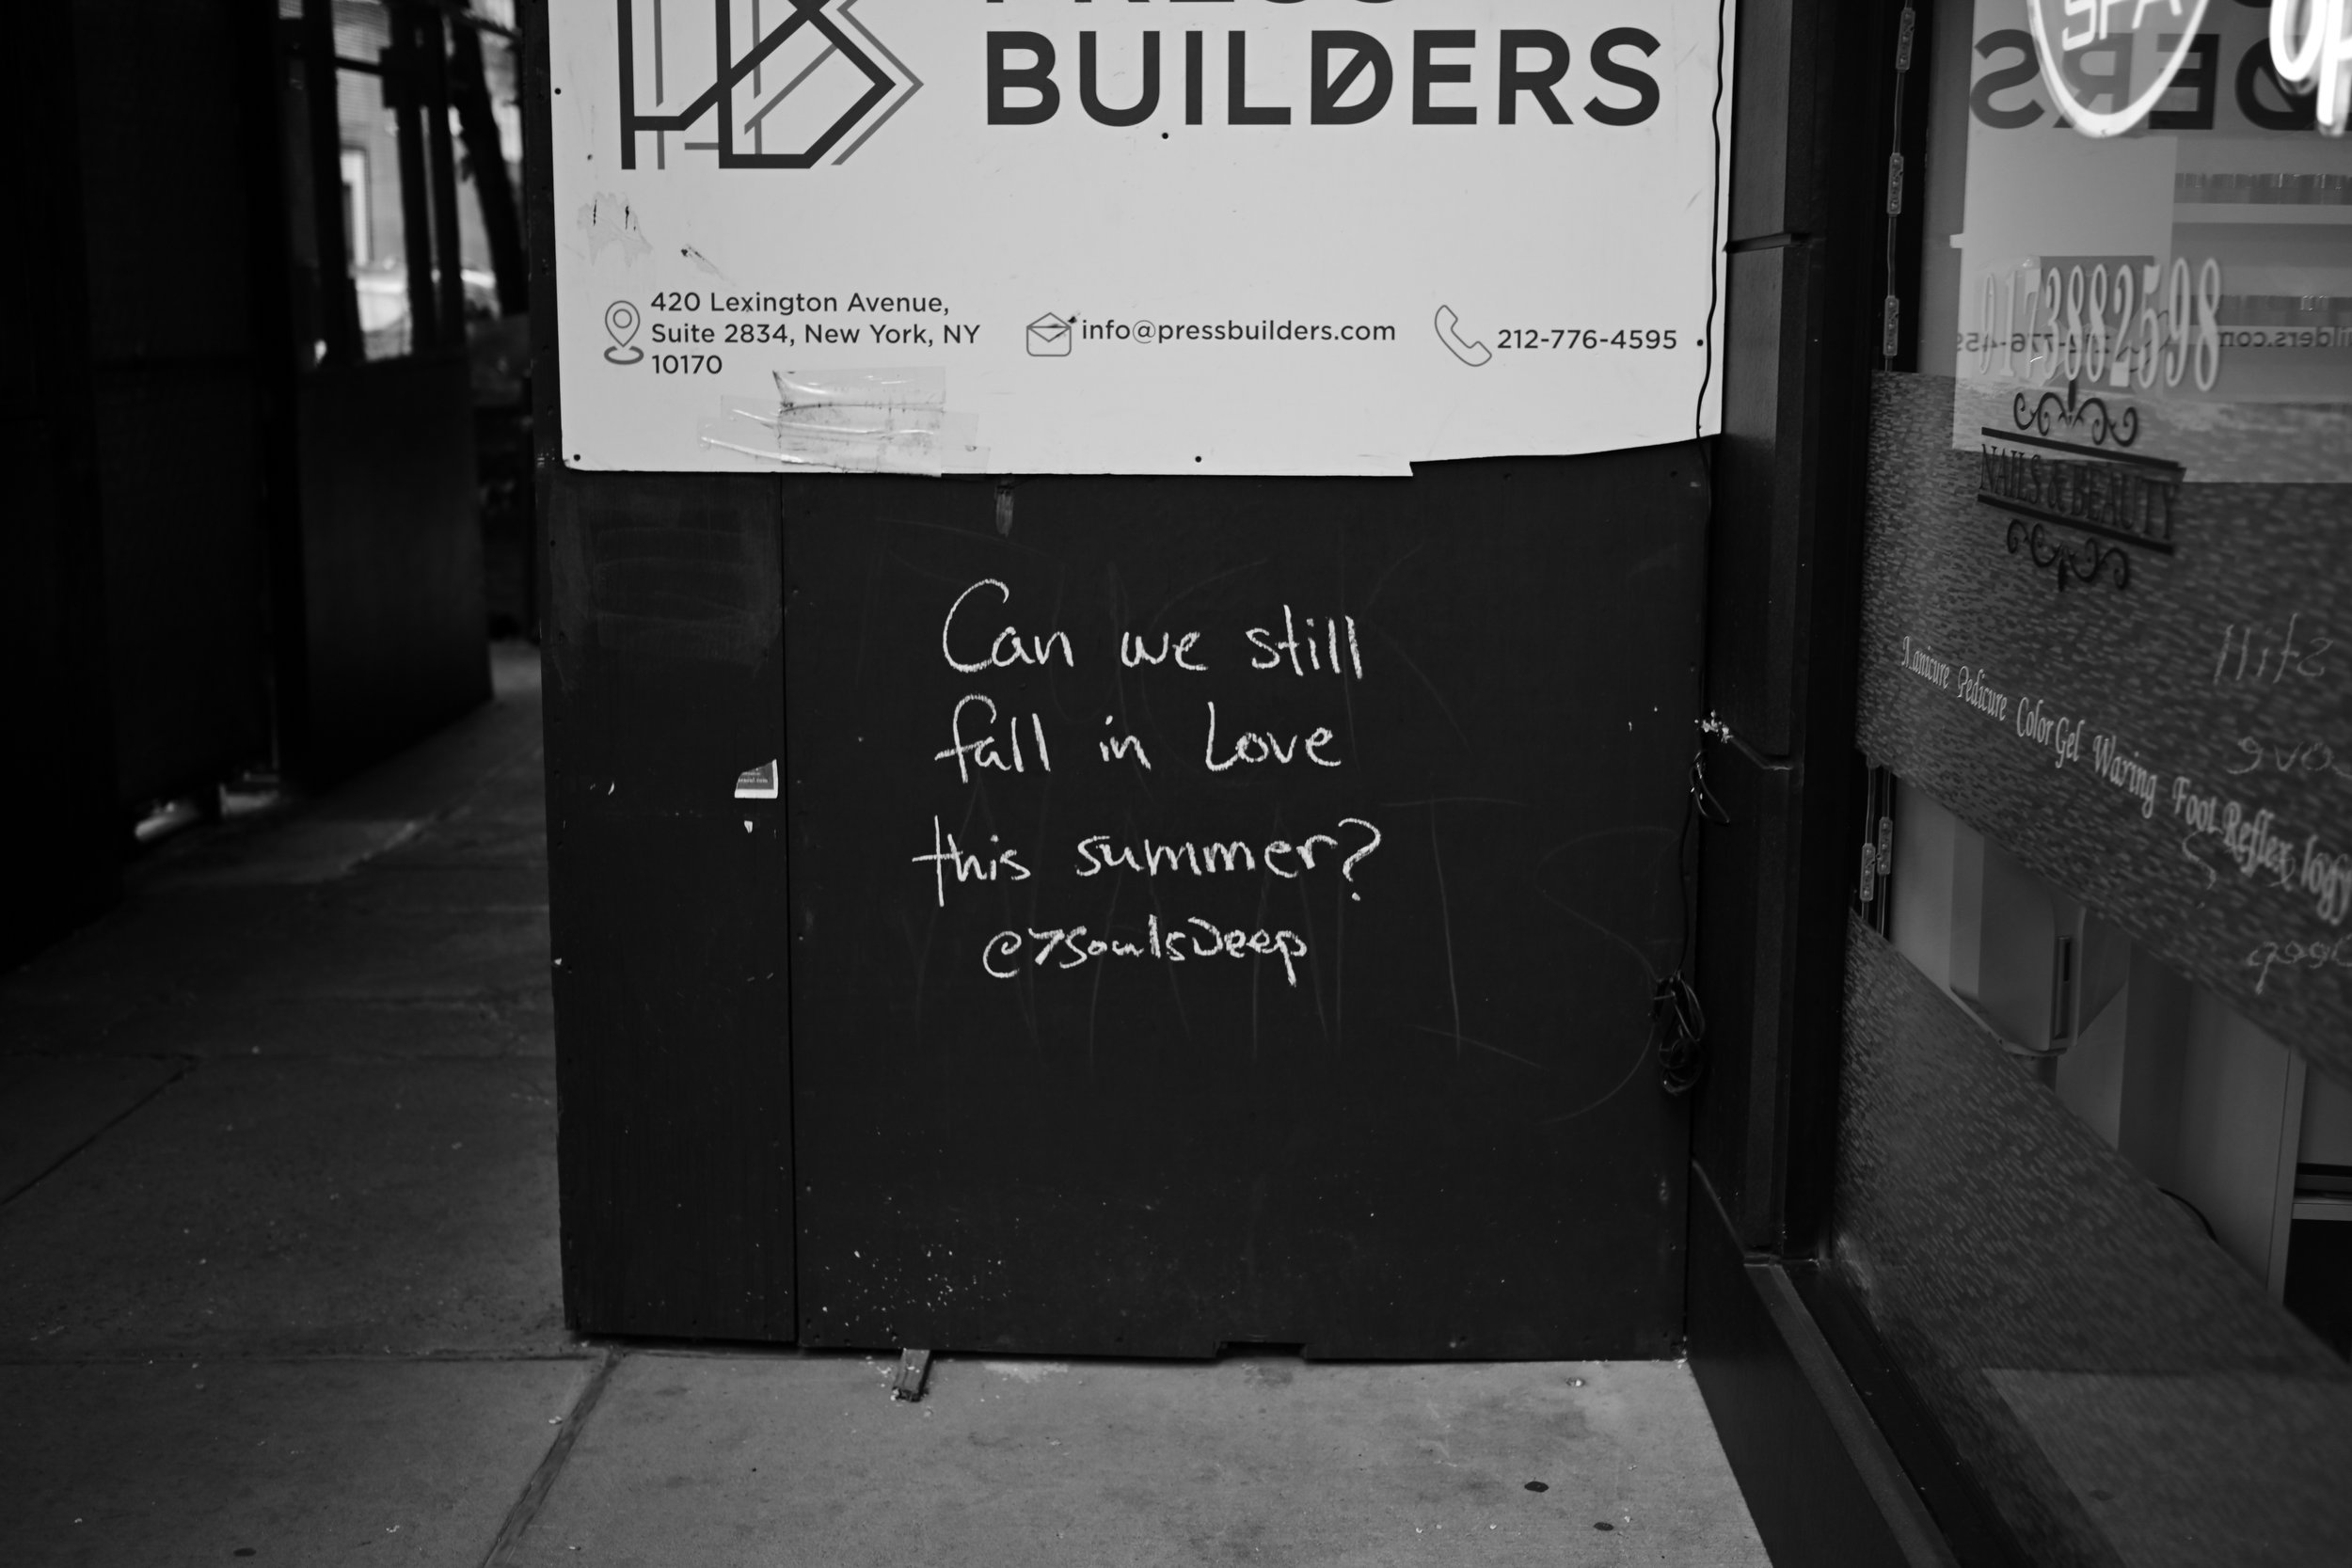 BUILDERS
420 Lexington Avenue,
Suite 2834, New York, NY
10170
info@pressbuilders.com
212-776-4595
Can we still
fall in Love
this summer?
@7soulsDeep
SPA
9173882598
NAILS & BEAUTY
Manicure Pedicure Color Gel Waxing Foot Reflexology